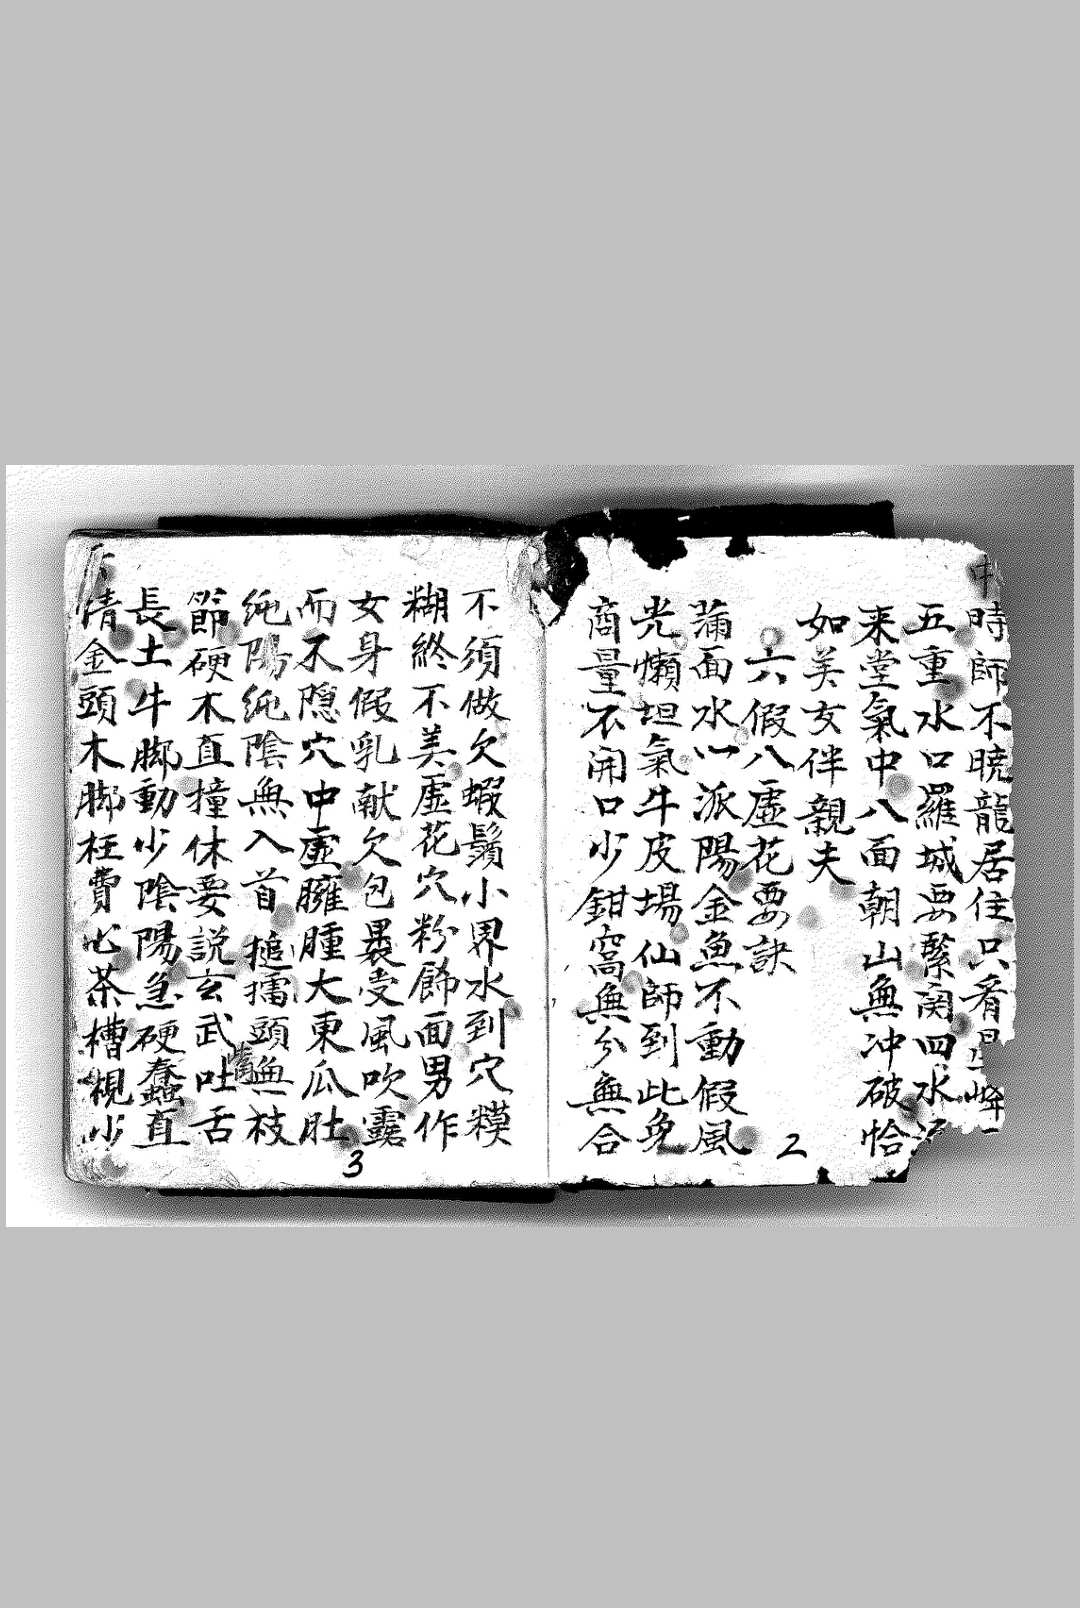 時師不曉龍居住只看
五重水口羅城要緊関四水
来堂氣中八面朝山無冲破恰
如美女伴親夫
六假八虛花要訣
蒲面水一派陽金魚不動假風
光懶坦氣牛皮場仙師到此免
商量不開口少鉗窩無分無合
2
不須做欠蝦鬚小界水到穴糢
糊終不美虛花穴粉飾面男作
女身假乳献欠包裹受風吹露
而不隐穴中虛臃腫大東瓜肚
純陽純陰無入首搥擂頭無枝
節硬木直撞休要説玄武嘴吐舌
長土牛脚動少陰陽急硬蠢直
清金頭木脚枉費心茶槽視少
3